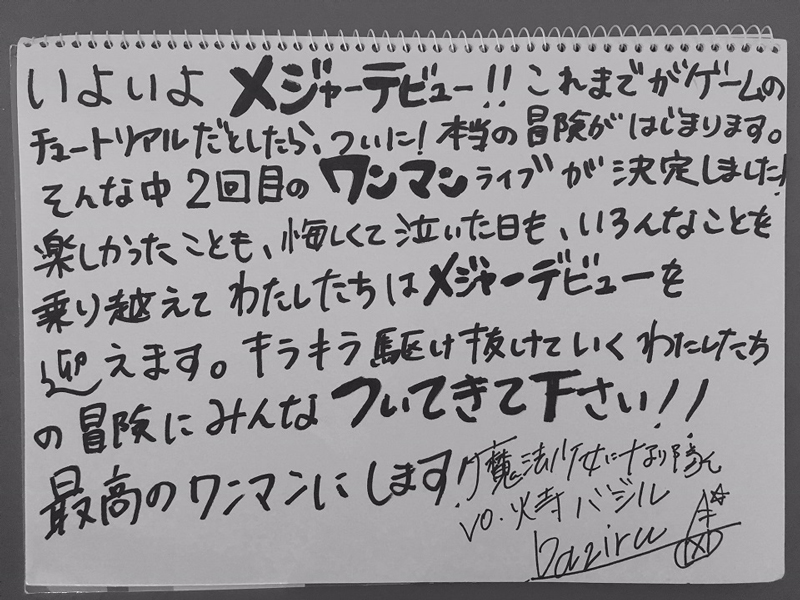 いよいよ メジャーデビュー!! これまでがゲームの
チュートリアルだとしたら、ついに! 本当の冒険がはじまります。
そんな中 2回目の ワンマンライブが 決定しました!
楽しかったことも、悔しくて泣いた日も、いろんなことを
乗り越えて わたしたちは メジャーデビューを
迎えます。キラキラ駆け抜けていく わたしたち
の冒険に みんな ついてきて下さい!!
最高のワンマンにします!!
魔法少女になり隊
vo. 火寺バジル
baziru